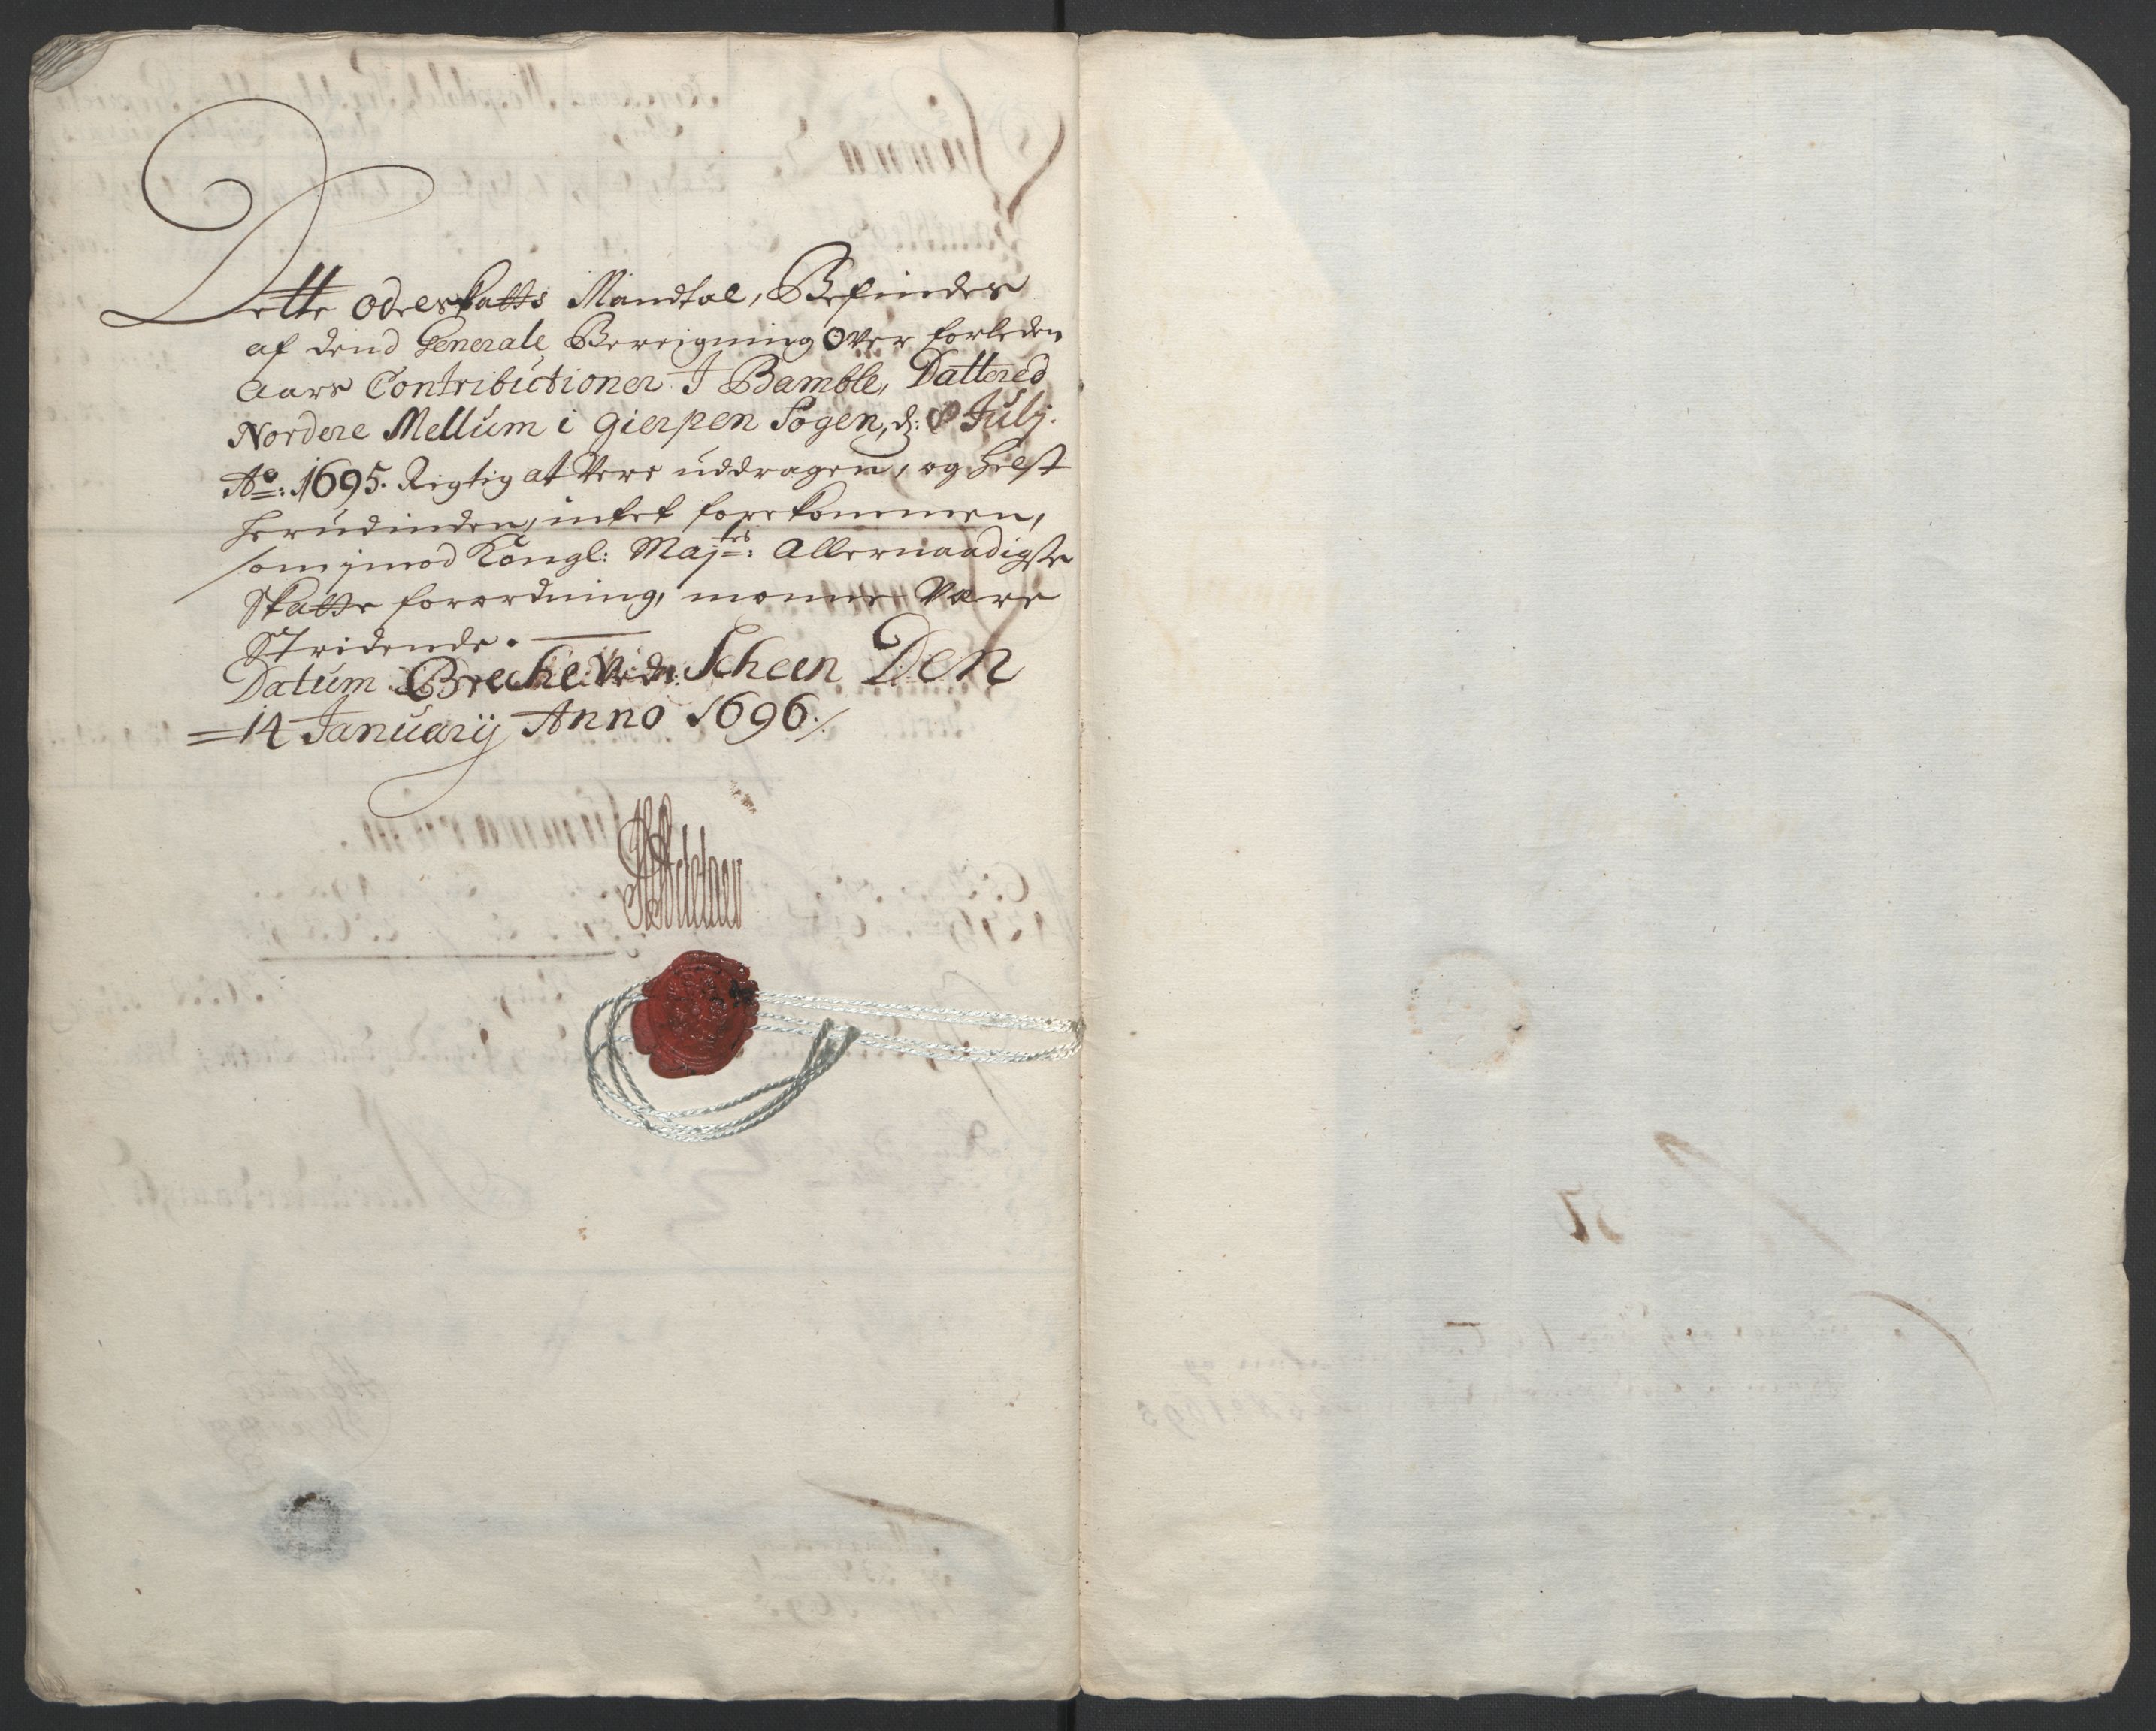 Dette Odelskatts Mandtal, Befindes
af dend Generale Bereigning Over forleden
Aars Contributioner I Bamble, Dattered
Nordere Mellum i Gierpen Sogen, d: 8 Julj.
Ao: 1695. Rigtig at Vere uddragen, og Helst
herudinden, intet forekommen,
som imod Kongl: Majtes: Allernaadigste
Skatte forordning, monne Være
Stridende.
Datum Brecke Ved Scheen Den
14 January Anno 1696./.